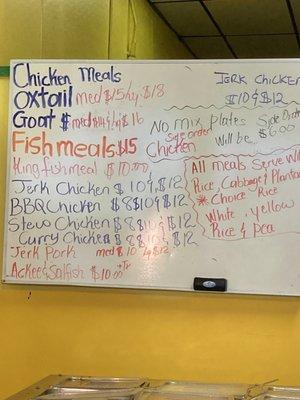 Chicken Meals
Oxtail med $15 lg $18
Goat $ med $14 lg $16
Fish meals $15
King fish meal $10.00
Jerk Chicken $10 & $12
BBQ Chicken $8 $10 & $12
Stew Chicken $8 $10 & $12
Curry Chicken $8 $10 & $12
Jerk Pork med $10 lg $12
Ackee & Salfish $10.00
Jerk Chicken
$10 & $12
No mix plates
Side order
Chicken
Side
Will be $6.00
All meals Serve
Rice, Cabbage & Plantain
*Choice Rice
White, yellow
Rice & Pea